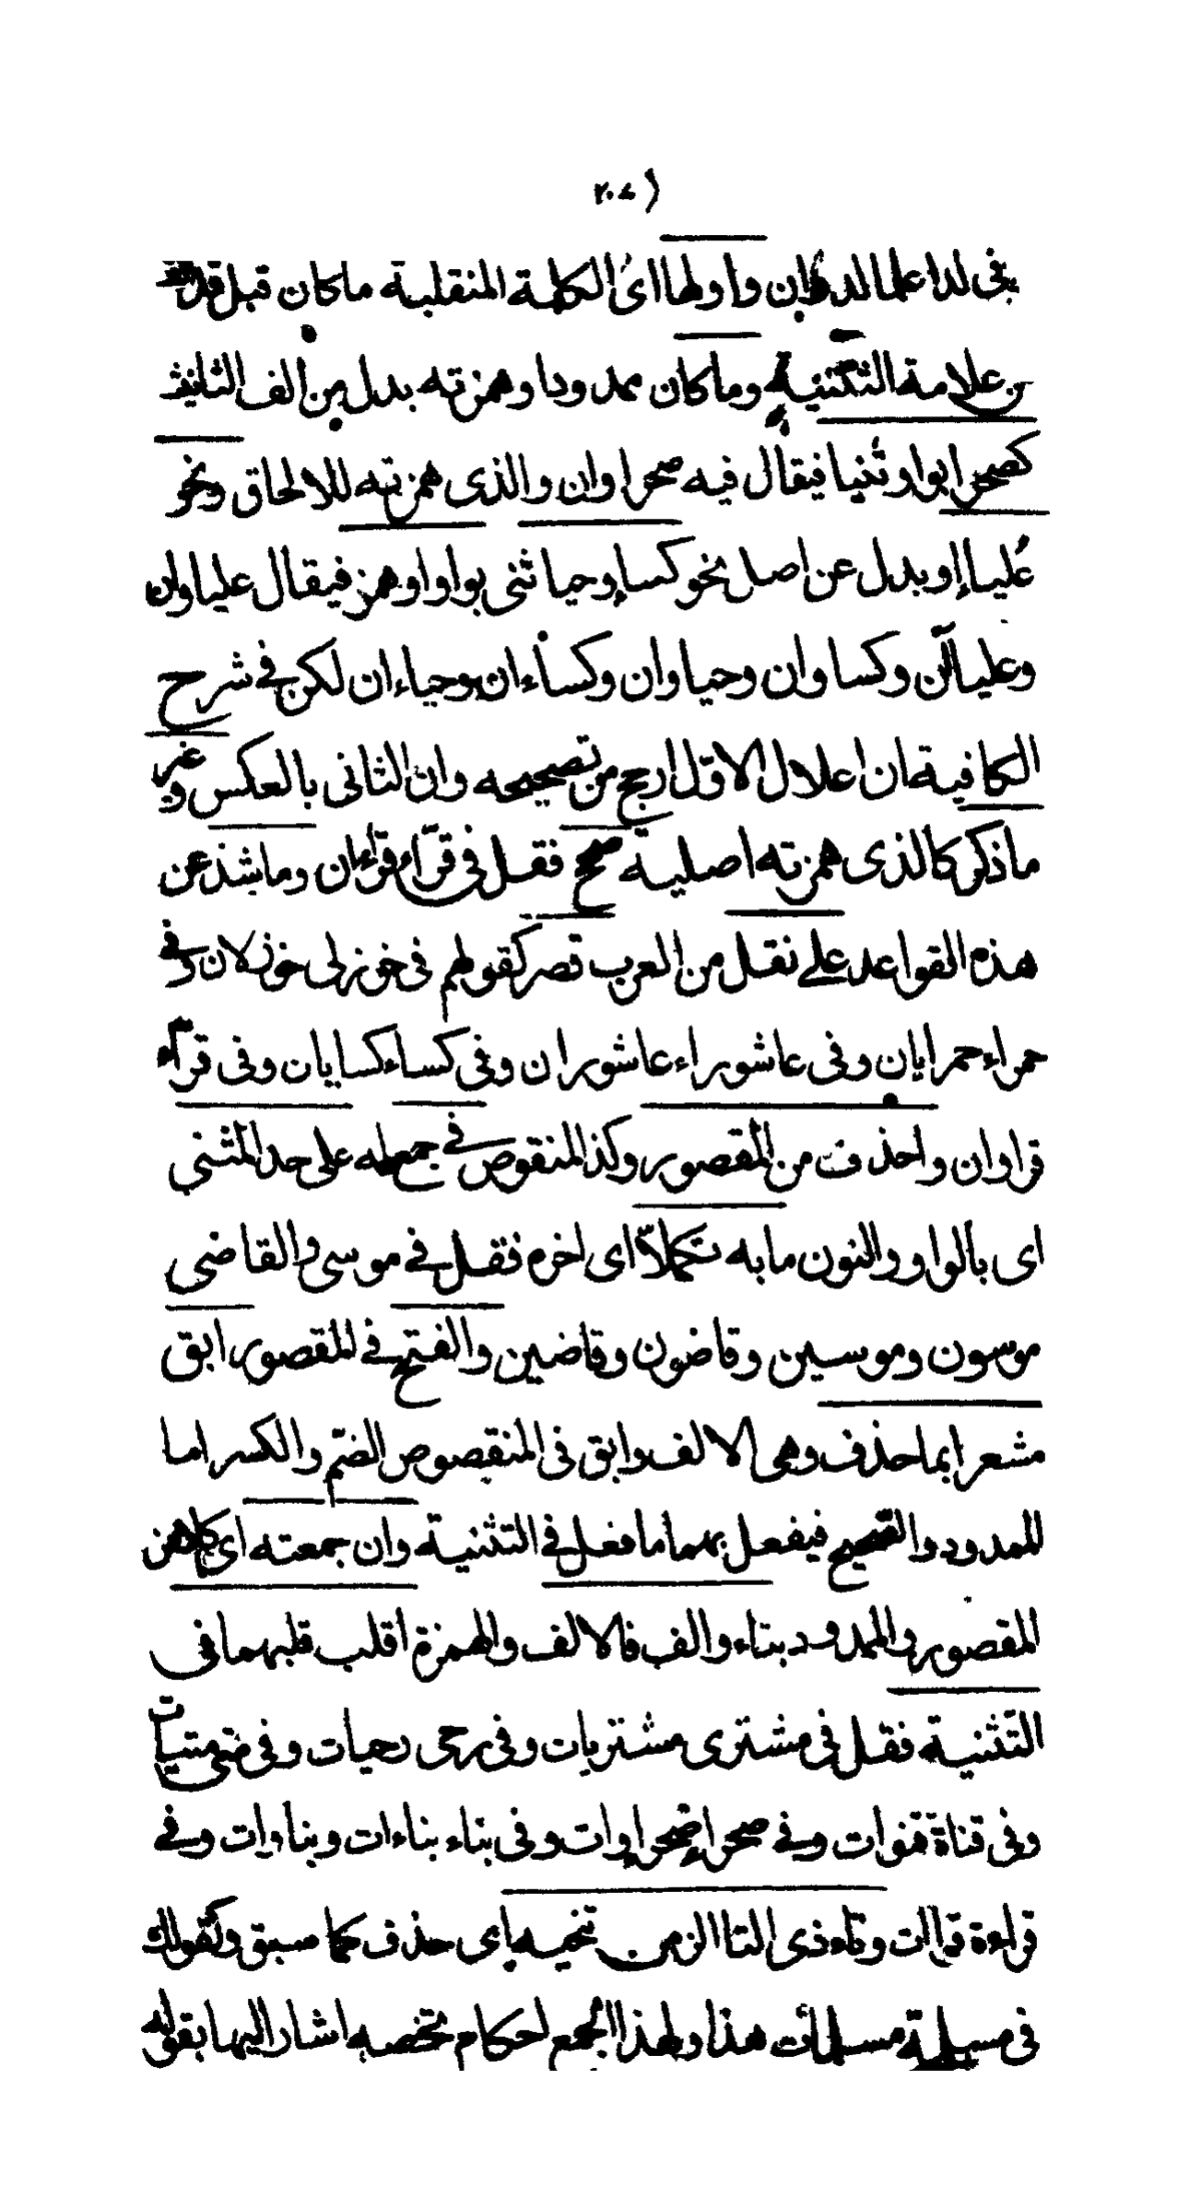 (٢٠٤
ففى لدا علما لدوان واولها اى الكلمة المنقلبة ماكان قبل قد
من علامة التثنية وماكان ممدودا وهمزته بدل من الف التانيث
كصحرا بواو ثنيا فيقال فيه صحراوان والذى همزته للالحاق ونحو
علياء او بدل عن اصل نحو كساء وحيا ثنى بواو او همز فيقال علياوان
وعلياآن وكساوان وحياوان وكساءان وحياءان لكن فى شرح
الكافية ان اعلال الاول ارجح من تصحيحه وان الثانى بالعكس وغير
ماذكر كالذى همزته اصلية صحح فقل فى قرّاء قرّاءان وماشذ عن
هذه القواعد على نقل من العرب قصر كقولهم فى خوزلى خوزلان وفى
حمراء حمرايان وفى عاشوراء عاشوران وفى كساء كسايان وفى قرّاء
قراوان واحذف من المقصور وكذا المنقوص فى جمعله على حد المثنى
اى بالواو والنون مابه تكمّلا اى اخره فقل فى موسى والقاضى
موسون وموسين وقاضون وقاضين والفتح فى المقصور ابق
مشعرا بما حذف وهى الالف وابق فى المنقصوص الضمّ والكسر اما
الممدود والصحيح فيفعل بهما ما فعل فى التثنية وان جمعته اى كلا من
المقصور والممدود بتاء والف فالالف والهمزة اقلب قلبهما فى
التثنية فقل فى مشترى مشتريات وفى رحى رحيات وفى متى متيات
وفى قناة قنوات وفى صحرا صحراوات وفى بناء بناءات وبناوات وفى
قراءة قراآت وتاء ذى التا الزمن تنحيه باى حذف كما سبق وكقولك
فى مسيلة مسلمات هذا ولهذا الجمع احكام تخصه اشار اليها بقوله